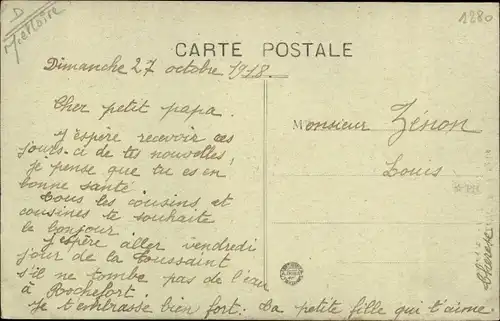 D
1280
CARTE POSTALE
Dimanche 27 octobre 1918.
Cher petit papa.
J'espère recevoir ces
jours-ci de tes nouvelles,
je pense que tu es en
bonne santé.
Tous les cousins et
cousines te souhaite
le bonjour.
J'espère aller vendredi
jour de la Toussaint
s'il ne tombe pas de l'eau
à Rochefort.
Je t'embrasse bien fort. La petite fille qui t'aime
Monsieur Zénon
Louis